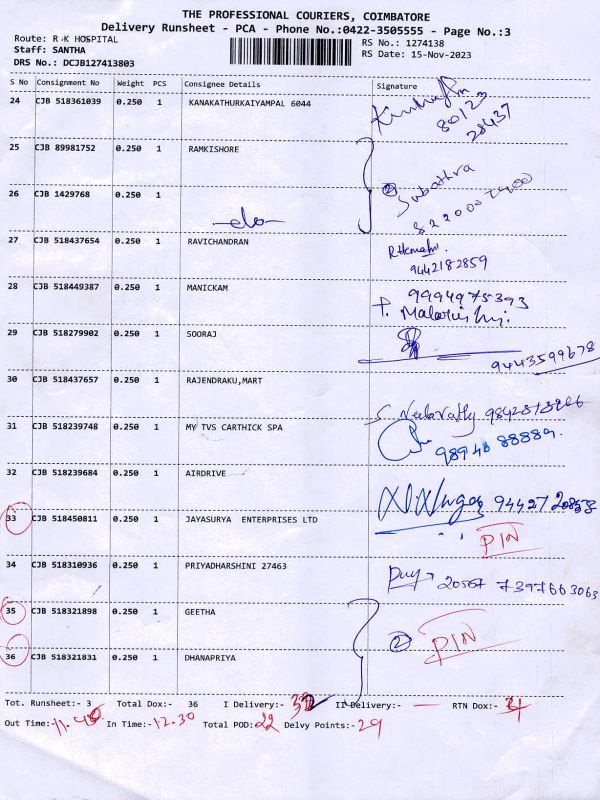 THE PROFESSIONAL COURIERS, COIMBATORE
Delivery Runsheet - PCA - Phone No.:0422-3505555 - Page No.:3
Route: R K HOSPITAL
RS No.: 1274138
Staff: SANTHA
RS Date: 15-Nov-2023
DRS No.: DCJB127413803
S No Consignment No Weight PCS Consignee Details Signature
24 CJB 518361039 0.250 1 KANAKATHURKAIYAMPAL 6044
80123
28437
25 CJB 89981752 0.250 1 RAMKISHORE
② Subathra
26 CJB 1429768 0.250 1
do
27 CJB 518437654 0.250 1 RAVICHANDRAN
9442182859
28 CJB 518449387 0.250 1 MANICKAM 9994975393
29 CJB 518279902 0.250 1 SOORAJ
9443599678
30 CJB 518437657 0.250 1 RAJENDRAKU,MART
31 CJB 518239748 0.250 1 MY TVS CARTHICK SPA
9894088889.
32 CJB 518239684 0.250 1 AIRDRIVE
33 CJB 518450811 0.250 1 JAYASURYA ENTERPRISES LTD
PIN
34 CJB 518310936 0.250 1 PRIYADHARSHINI 27463
20567 7397663063
35 CJB 518321898 0.250 1 GEETHA
② PIN
36 CJB 518321831 0.250 1 DHANAPRIYA
Tot. Runsheet:- 3 Total Dox:- 36 I Delivery:- II Delivery:- — RTN Dox:-
Out Time:- 11.40 In Time:- 12.30 Total POD: 22 Delvy Points:- 29